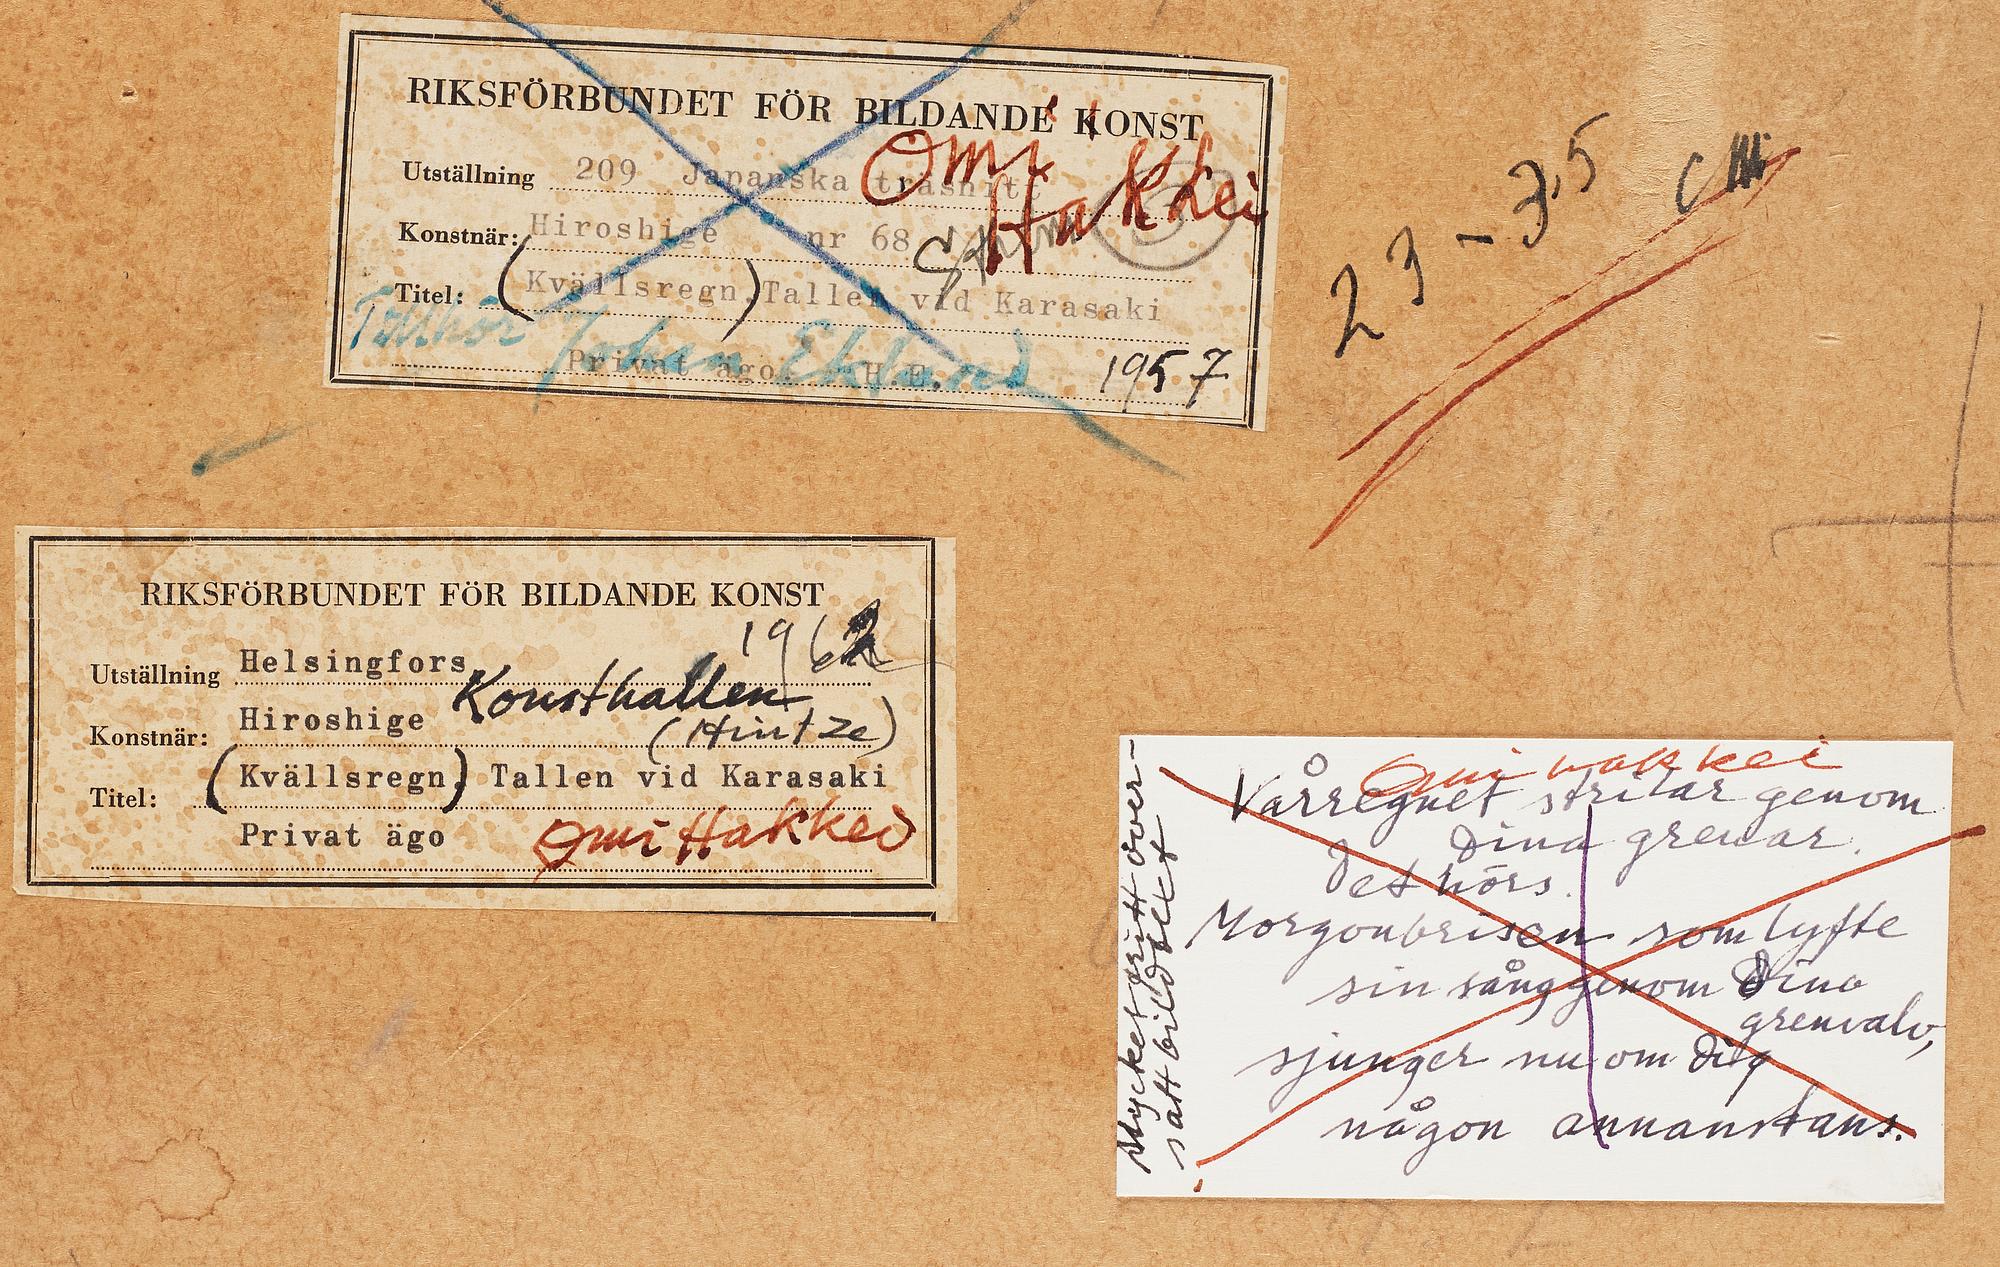 RIKSFÖRBUNDET FÖR BILDANDE KONST
Utställning 209 Japanska träsnitt
Omi Hakkei
Konstnär: Hiroshige nr 68
Titel: (Kvällsregn.) Tallen vid Karasaki
Tillhör Johan Eklund
Privat ägo. H.E. 1957
23 - 35 cm
RIKSFÖRBUNDET FÖR BILDANDE KONST
1962
Utställning Helsingfors, Konsthallen
Konstnär: Hiroshige (Hintze)
Titel: (Kvällsregn.) Tallen vid Karasaki
Privat ägo Omi Hakkei
Omi hakkei
Vårregnet strilar genom
Dina grenar.
Det hörs.
Morgonbrisen som lyfte
sin sång genom Dina
grenvalv,
sjunger nu om Dig
någon annanstans.
Mycket fritt över-
satt bildbelet